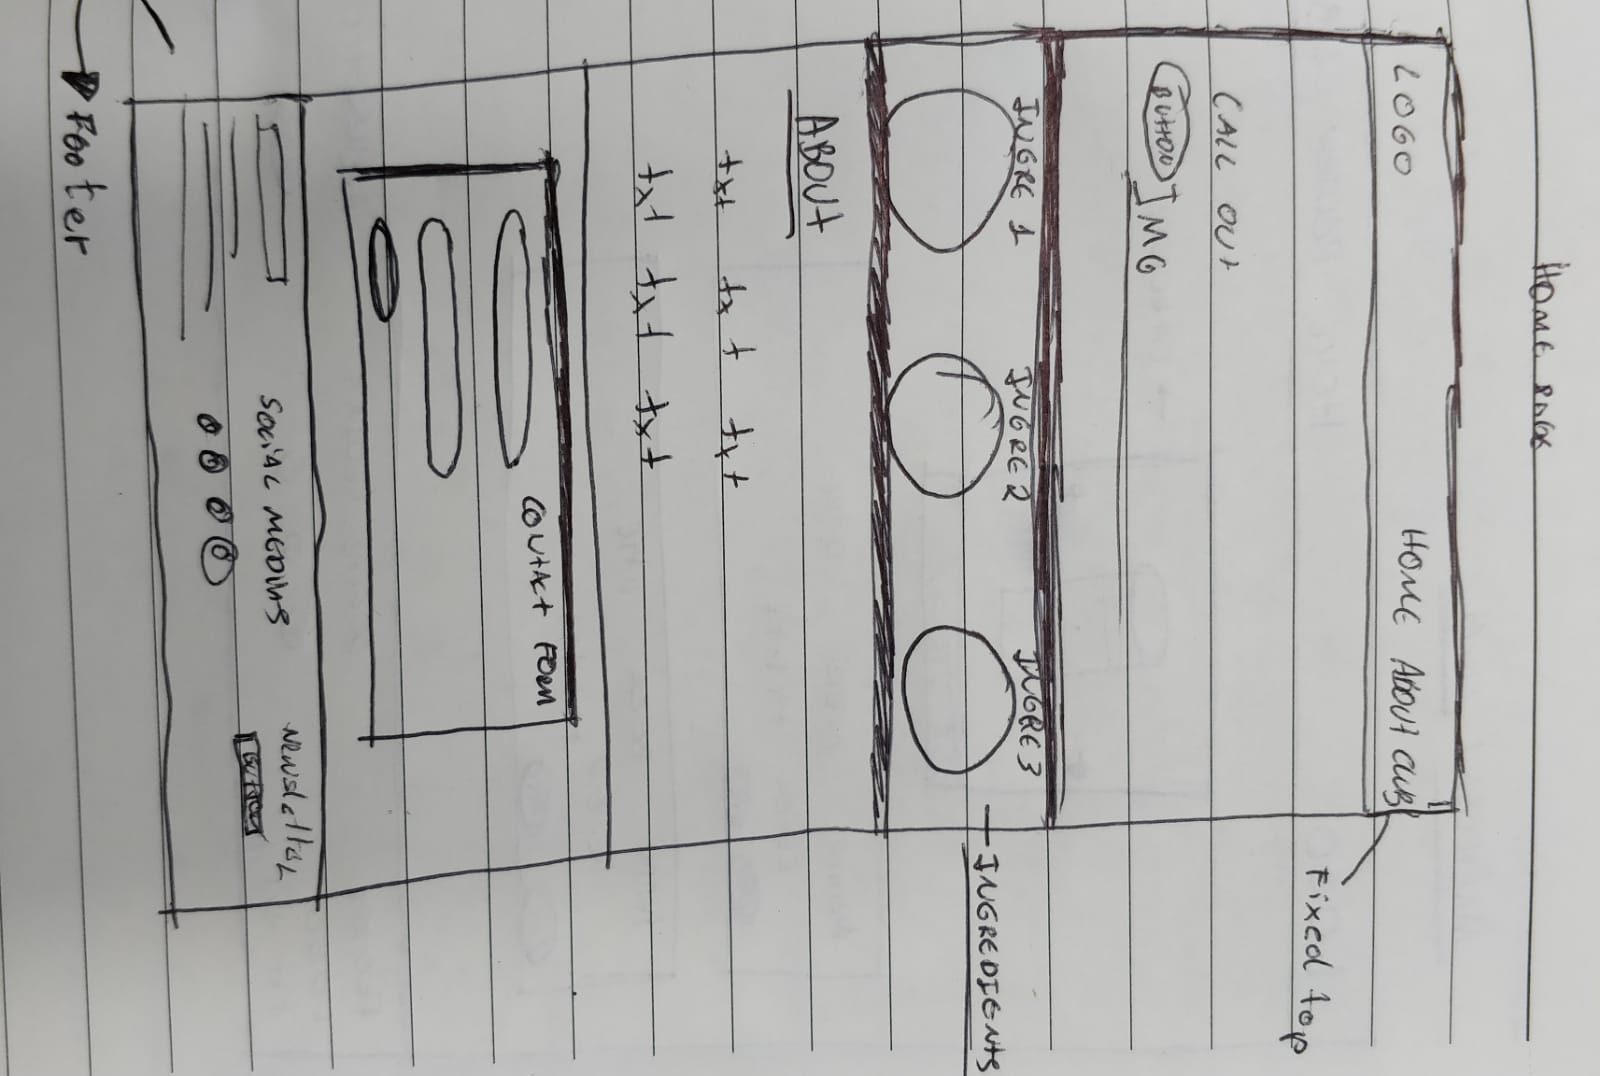 HOME PAGE
LOGO HOME ABOUT CLUB
Fixed top
CALL OUT
BUTTON IMG
INGRE 1 INGRE 2 INGRE 3
INGREDIENTS
ABOUT
txt txt txt
txt txt txt
CONTACT FORM
SOCIAL MEDIAS Newsletter
BUTTON
Footer